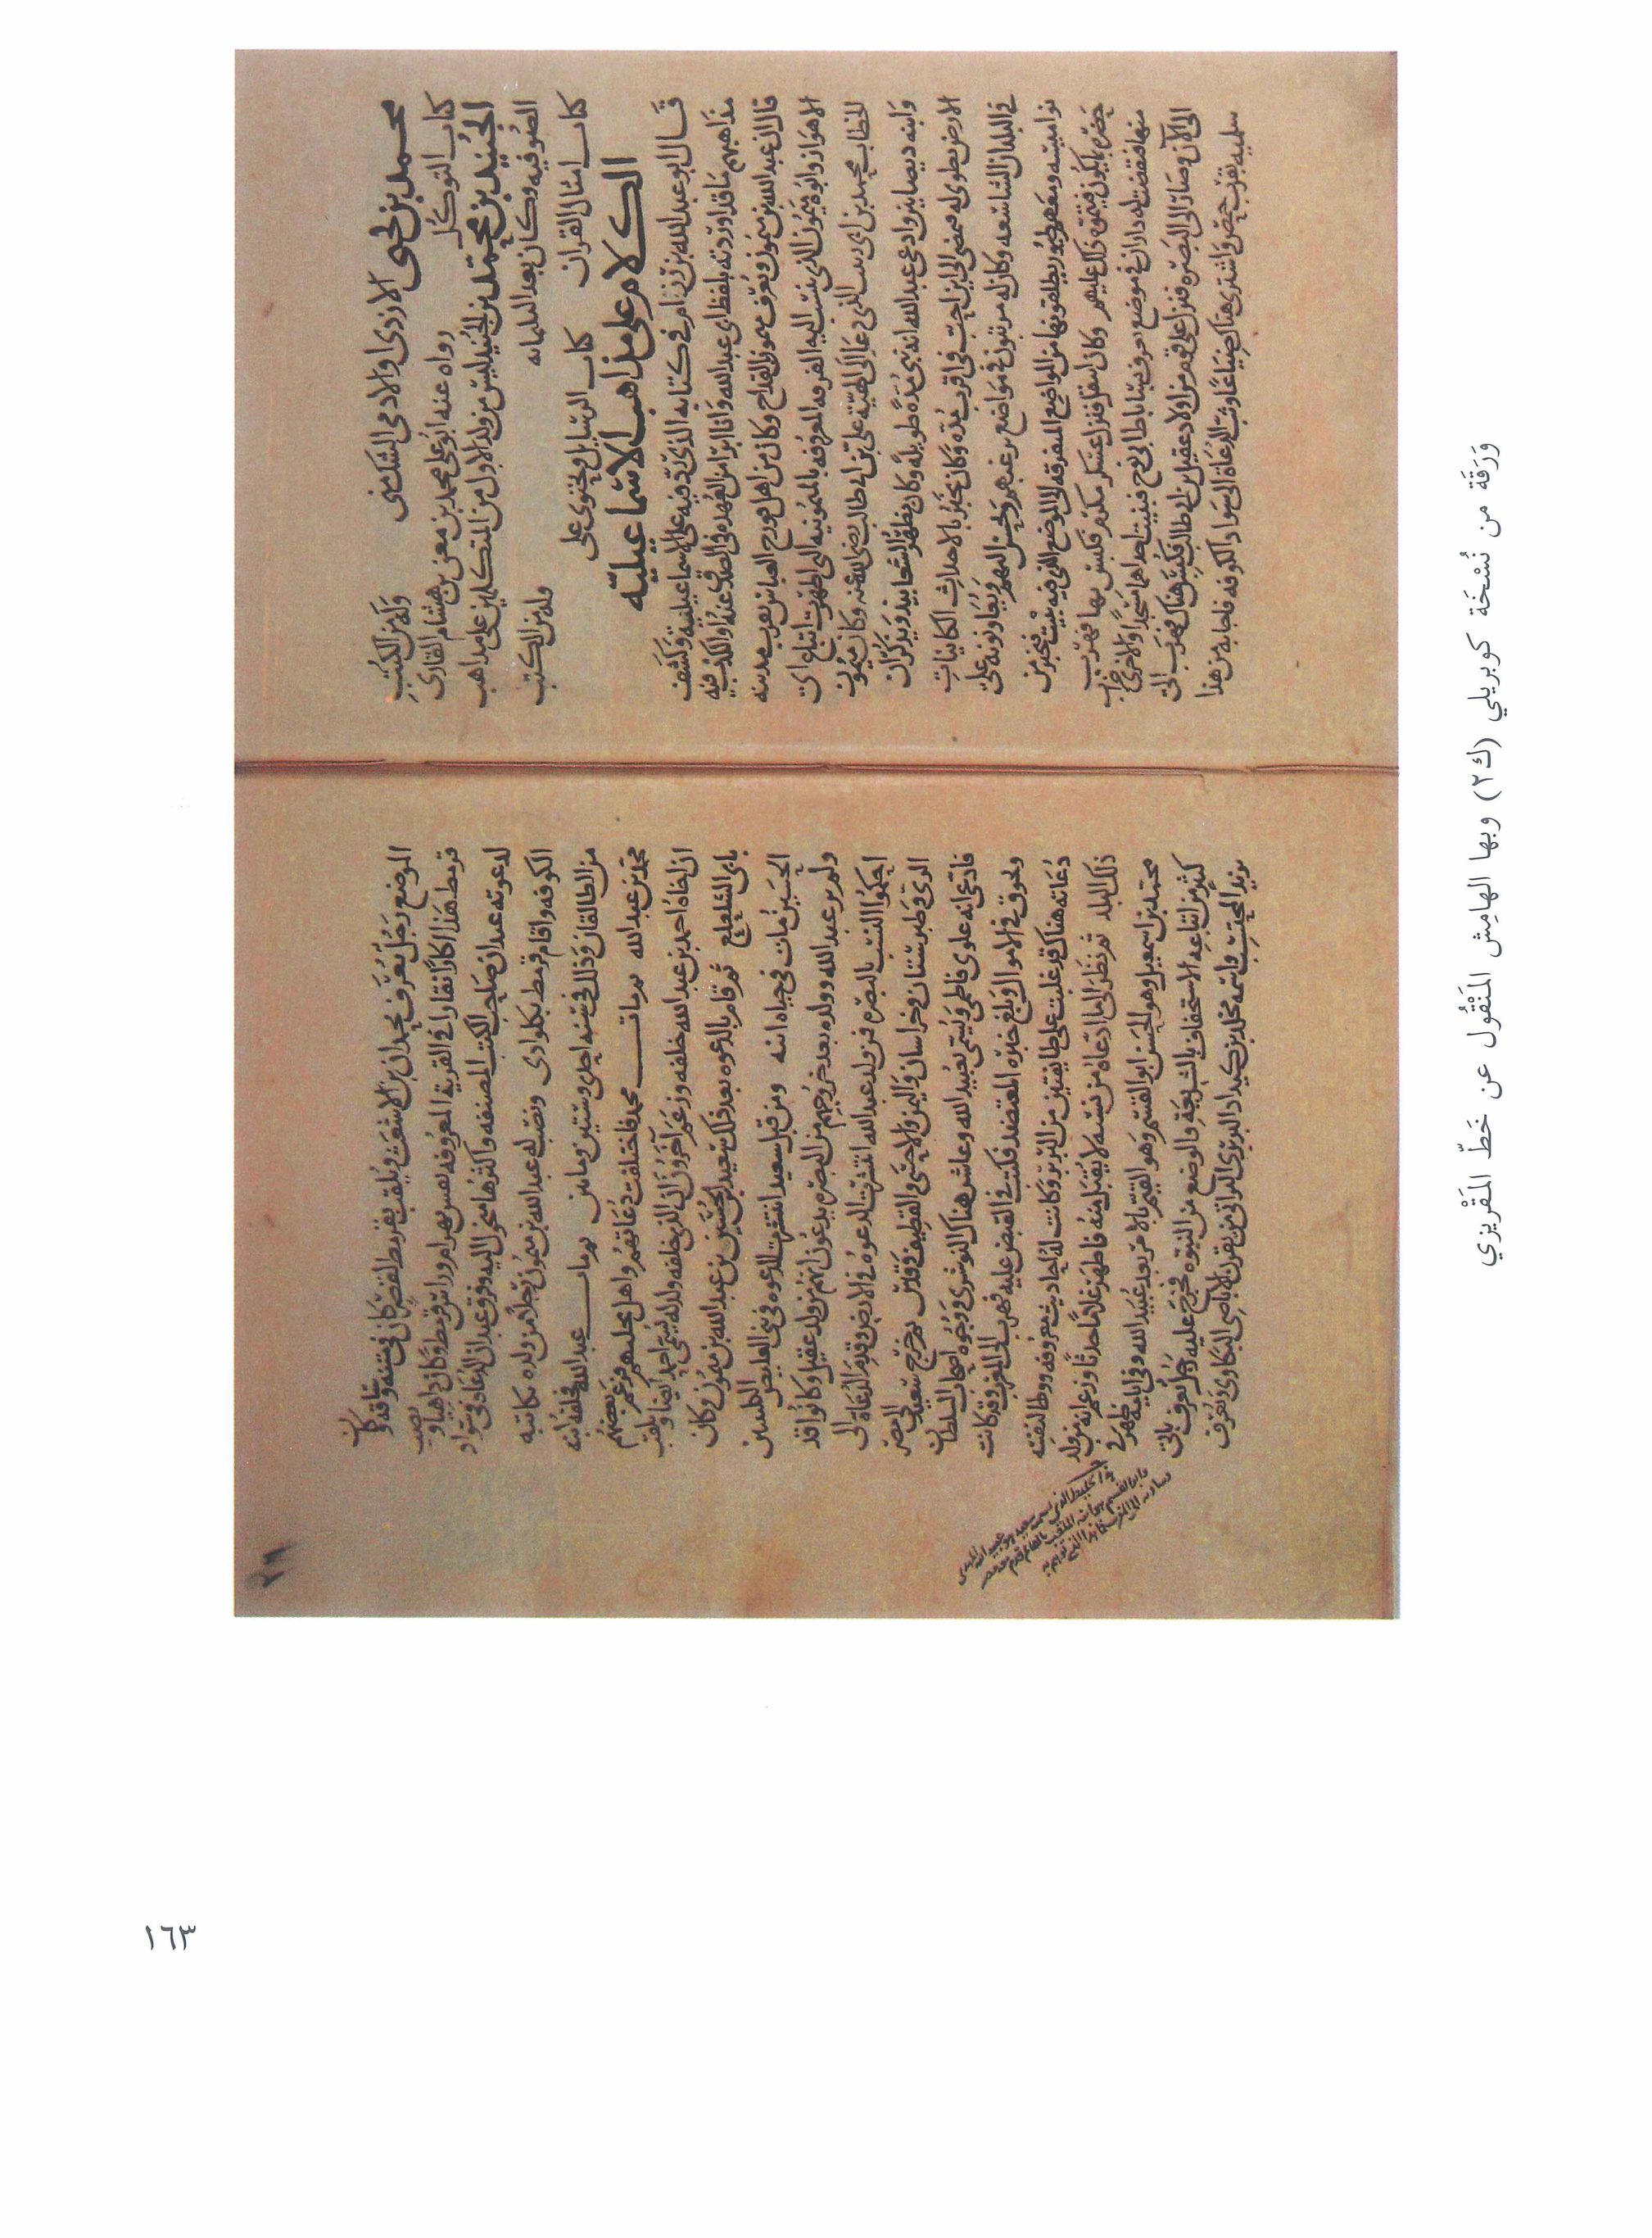 محمد بن يحيى الازدى والادمى الشكمنى وله من الكتب
كتاب التوكل رواه عنه ابو على محمد بن معن بن هشام القارى
الجنيد بن محمد بن الجنيد ليس من ولد الاول من المتكلمين على مذاهب
الصوفيه وكان بعد الثلثمائه وله من الكتب
كتاب امثال القران كتاب الرسايل ويحتوى على
الكلام على مذاهب الاسماعيليه
قال ابو عبد الله بن رزام فى كتابه الذى رد فيه على الاسماعيليه وكشف
مذاهبهم ما قد اوردته بلفظ ابى عبد الله وانا ابرا من العهده فى الصدق عنه او الكذب فيه
قال ان عبد الله بن ميمون ويعرف ميمون القداح وكان من اهل قورح العباس بقرب مدينه
الاهواز وابوه ميمون الذى تنتسب اليه الفرقه المعروفه بالميمونيه التى اظهرت اتباع ابى
الخطاب محمد بن ابى زينب الذى دعا الى الهيه على بن ابى طالب رضى الله عنه وكان ميمون
وابنه ديصانيين وادعى عبد الله انه نبى مدة طويلة وكان يظهر الشعابيذ ويذكر ان
الارض تطوى له فيمضى الى اين احب فى اقرب مده وكان يخبر بالاحداث الكاينات
فى البلدان الشاسعه وكان له مرتبون فى مواضع يرغبهم ويحسن اليهم ويعاونونه على
نواميسه ومعهم طيور يطلقونها من المواضع المتفرقه الى الموضع الذى فيه بيته فيخبر من
حضره بما يكون فيتموه ذلك عليهم وكان انتقل فنزل عسكر مكرم فكبس بها فهرب
منها فنقضت له داران فى موضع يعرف بساباط ابى نوح فبنيت احداهما مسجدا والاخرى خراب
الى الآن وصار الى البصره فنزل على قوم من اولاد عقيل بن ابى طالب فكبس هناك فهرب الى
سلميه بقرب حمص واشترى هناك ضياعا وبث الدعاة الى سواد الكوفه فاجابه من هذا
الموضع رجل يعرف بحمدان بن الاشعث ويلقب بقرمط لقصر كان فى متنه وساقه وكان
قرمط هذا اكارا نقارا فى القرية المعروفه بقس بهرام وراس قرمط وكان داهيا ونصب
لدعوته عبدان صاحب الكتب المصنفه واكثرها منحول اليه وفرق عبدان الدعاة فى سواد
الكوفه واقام قرمط بكلوادى ونصب له عبد الله بن ميمون رجلا من ولده يكاتبه
من الطالقان وذلك فى سنه احدى وستين ومايتين ثم مات عبد الله فخلفه ابنه
محمد بن عبد الله ثم مات محمد فاختلفت دعاتهم واهل نحلتهم فزعم بعضهم
ان اخاه احمد بن عبد الله خلفه وزعم آخرون ان الذى خلفه ولد له يسمى احمد ايضا ويلقب
بابى الشلعلع ثم قام بالدعوه بعد ذلك سعيد بن الحسين بن عبد الله بن ميمون وكان
الحسين مات فى حياه ابيه ومن قبل سعيد انتشرت الدعوه فى بنى العليص الكلبيين
ولم يزل عبد الله وولده بعد خروجهم من البصره يدعون انهم من ولد عقيل وكانوا قد
احكموا النسب بالبصره فمن ولد عبد الله انتشرت الدعوه فى الارض وقدم الدعاة الى
الرى وطبرستان وخراسان واليمن والاحسى والقطيف وقدس ثم خرج سعيد الى مصر
فادعى انه علوى فاطمى وتسمى بعبيد الله وعاشر هناك النوشرى ووجوه اصحاب السلطان
وتخوق فى الاموال وبلغ خبره المعتضد فكتب فى القبض عليه فهرب الى المغرب وقد كانت
دعاته هناك قد غلبت على طايفتين من البربر وكانت له احاديث معروفه ووطا لنفسه
ذلك البلد ثم نظر الى ما ادعاه من نسبه لا يقبل منه فاظهر غلاما حدثا وزعم انه من ولد
محمد بن اسمعيل وهو الحسن ابو القسم وهو القيم بالامر بعد عبيد الله وفى ايامه ظهر فى
كثير من اتباعه الاستخفاف بالشريعه والوضع من النبوه فخرج عليه رجل يعرف بابى
يزيد المحتسب واسمه مخلد بن كيداد البربرى الزناتى من يفرن الاباضى النكارى ويعرف
٢١
ورقة من نسخة كوبريلي (ك٢) وبها الهامش المنقول عن خط المقريزي
١٦٣